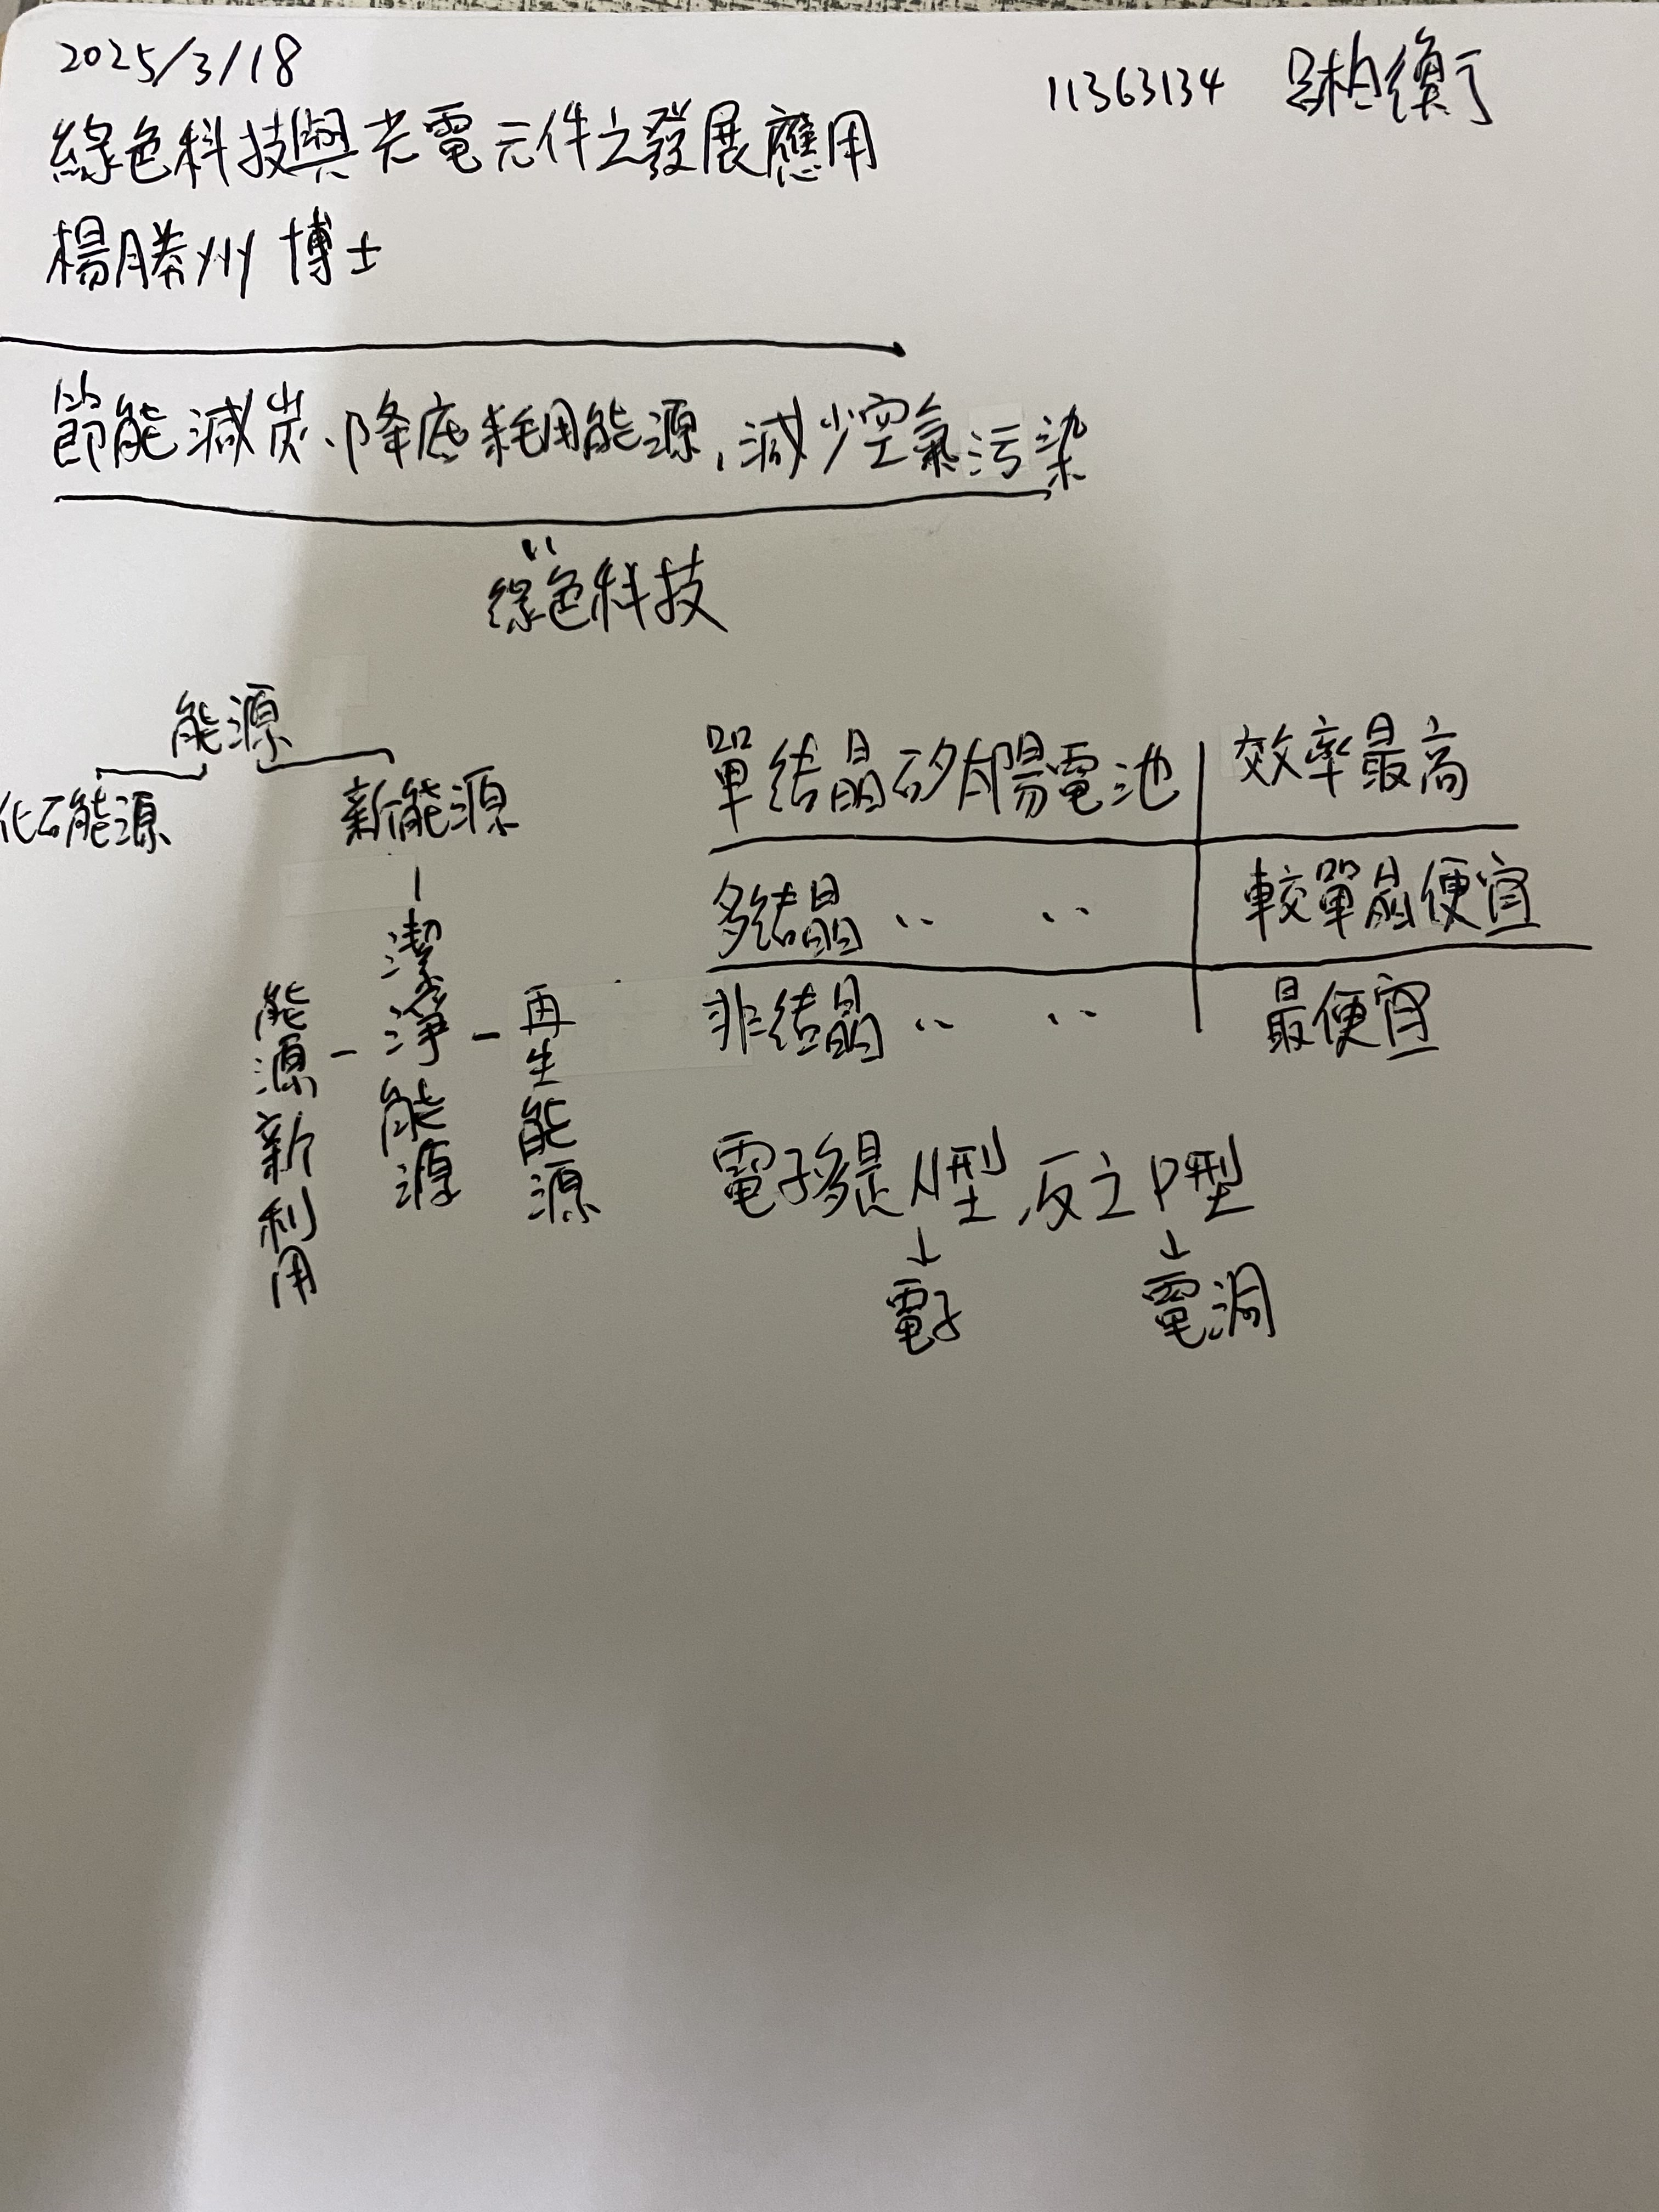 2025/3/18
11363134 呂柏衡
綠色科技與光電元件之發展應用
楊勝州 博士
節能減炭、降底耗用能源,減少空氣污染
綠色科技
能源
化石能源 新能源
能源新利用 - 潔淨能源 - 再生能源
單結晶矽太陽電池 效率最高
多結晶 〃 〃 較單晶便宜
非結晶 〃 〃 最便宜
電子多是N型,反之P型
↓ ↓
電子 電洞